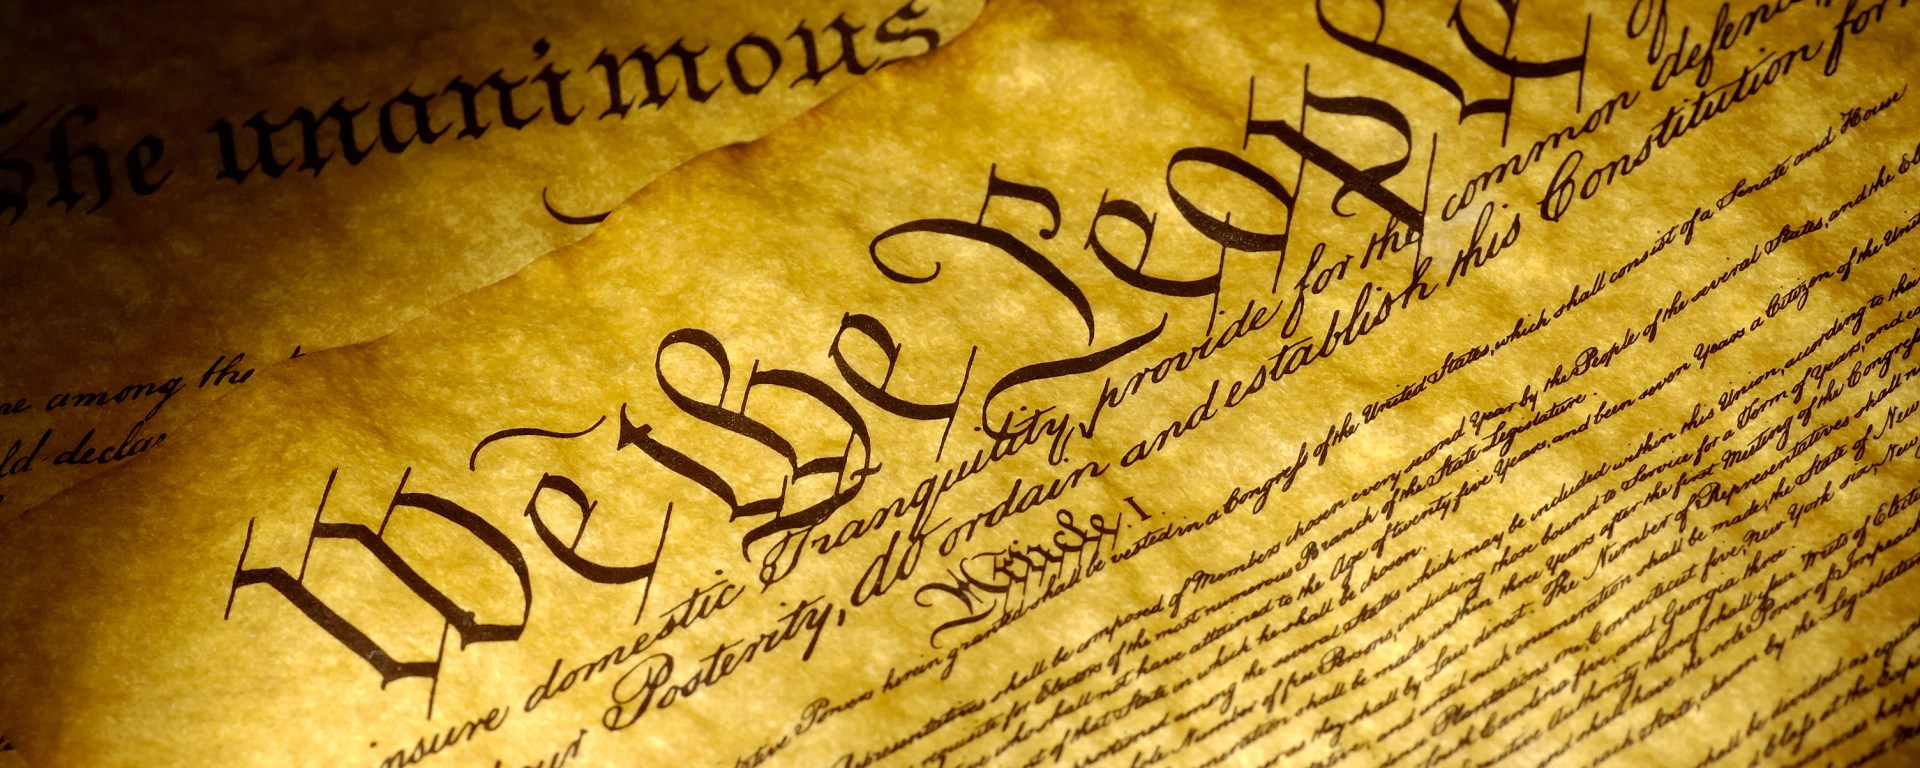 The unanimous
among the
We the People
insure domestic Tranquility, provide for the common defen
our Posterity, do ordain and establish this Constitution for
Article. I.
Powers herein granted shall be vested in a Congress of the United States, which shall consist of a Senate and House
shall be composed of Members chosen every second Year by the People of the several States, and the
for Electors of the most numerous Branch of the State Legislature.
who shall not have attained to the Age of twenty five Years, and been seven Years a Citizen of the
of that State in which he shall be chosen.
among the several States which may be included within this Union, according to their
Number of free Persons, including those bound to Service for a Term of Years, and
shall be made within three Years after the first Meeting of the Congress
they shall by Law direct. The Number of Representatives shall
and until such enumeration shall be made, the State of New
Plantations one, Connecticut five, New York six, New
Carolina five, and Georgia three.
Authority thereof shall issue Writs of
and shall have the sole Power of
each State, chosen by the Legislature
shall be divided as
at the